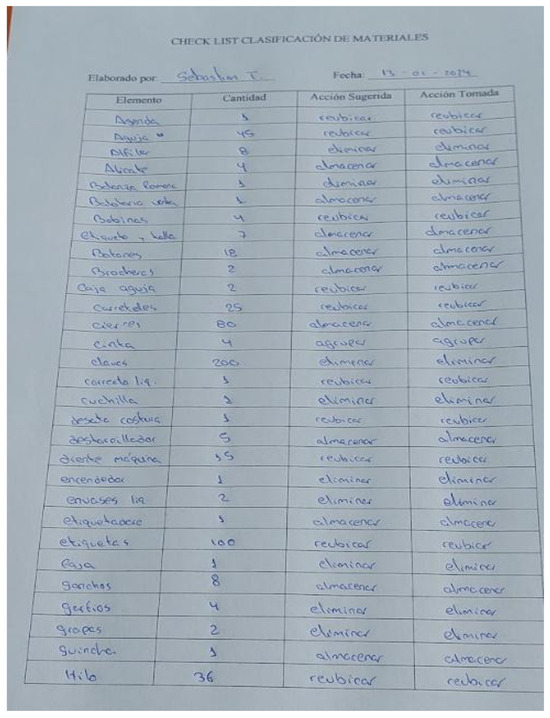 CHECK LIST CLASIFICACIÓN DE MATERIALES
Elaborado por: Sebastian T. Fecha: 13 - 01 - 2024
Elemento Cantidad Acción Sugerida Acción Tomada
Agenda 1 reubicar reubicar
Aguja 45 reubicar reubicar
Alfiler 8 eliminar eliminar
Alicate 4 almacenar almacenar
Balanza Romana 1 eliminar eliminar
1 almacenar almacenar
Bobinas 4 reubicar reubicar
etiqueta y talla 7 almacenar almacenar
Botones 18 almacenar almacenar
Brocheros 2 almacenar almacenar
Caja aguja 2 reubicar reubicar
Carreteles 25 reubicar reubicar
cierres 80 almacenar almacenar
cinta 4 agrupar agrupar
clavos 200 eliminar eliminar
correcto liq. 1 reubicar reubicar
cuchilla 1 eliminar eliminar
desata costura 1 reubicar reubicar
destornillador 5 almacenar almacenar
diente máquina 15 reubicar reubicar
encendedor 1 eliminar eliminar
envases liq 2 eliminar eliminar
etiquetadore 1 almacenar almacenar
etiquetas 100 reubicar reubicar
1 eliminar eliminar
ganchos 8 almacenar almacenar
garfios 4 eliminar eliminar
grapas 2 eliminar eliminar
guincha 1 almacenar almacenar
Hilo 36 reubicar reubicar